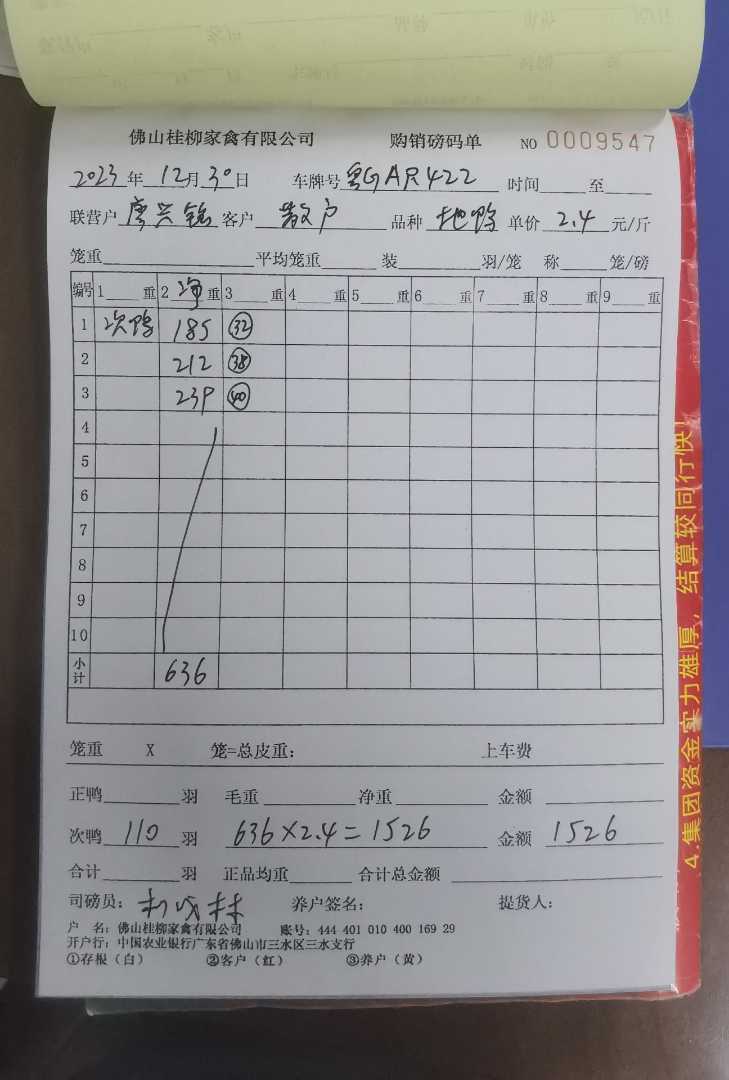 佛山桂柳家禽有限公司 购销磅码单 NO 0009547
2023年12月30日 车牌号 粤GAR422 时间 至
联营户 唐兴锦 客户 散户 品种 地鸭 单价 2.4 元/斤
笼重 平均笼重 装 羽/笼 称 笼/磅
编号 1 重 2 净 重 3 重 4 重 5 重 6 重 7 重 8 重 9 重
1 次鸭 185 32
2 212 38
3 239 40
4
5
6
7
8
9
10
小计 636
笼重 X 笼=总皮重: 上车费
正鸭 羽 毛重 净重 金额
次鸭 110 羽 636×2.4=1526 金额 1526
合计 羽 正品均重 合计总金额
司磅员: 养户签名: 提货人:
户 名: 佛山桂柳家禽有限公司 账号: 444 401 010 400 169 29
开户行: 中国农业银行广东省佛山市三水区三水支行
①存根(白) ②客户(红) ③养户(黄)
4.集团资金实力雄厚、结算较同行快!